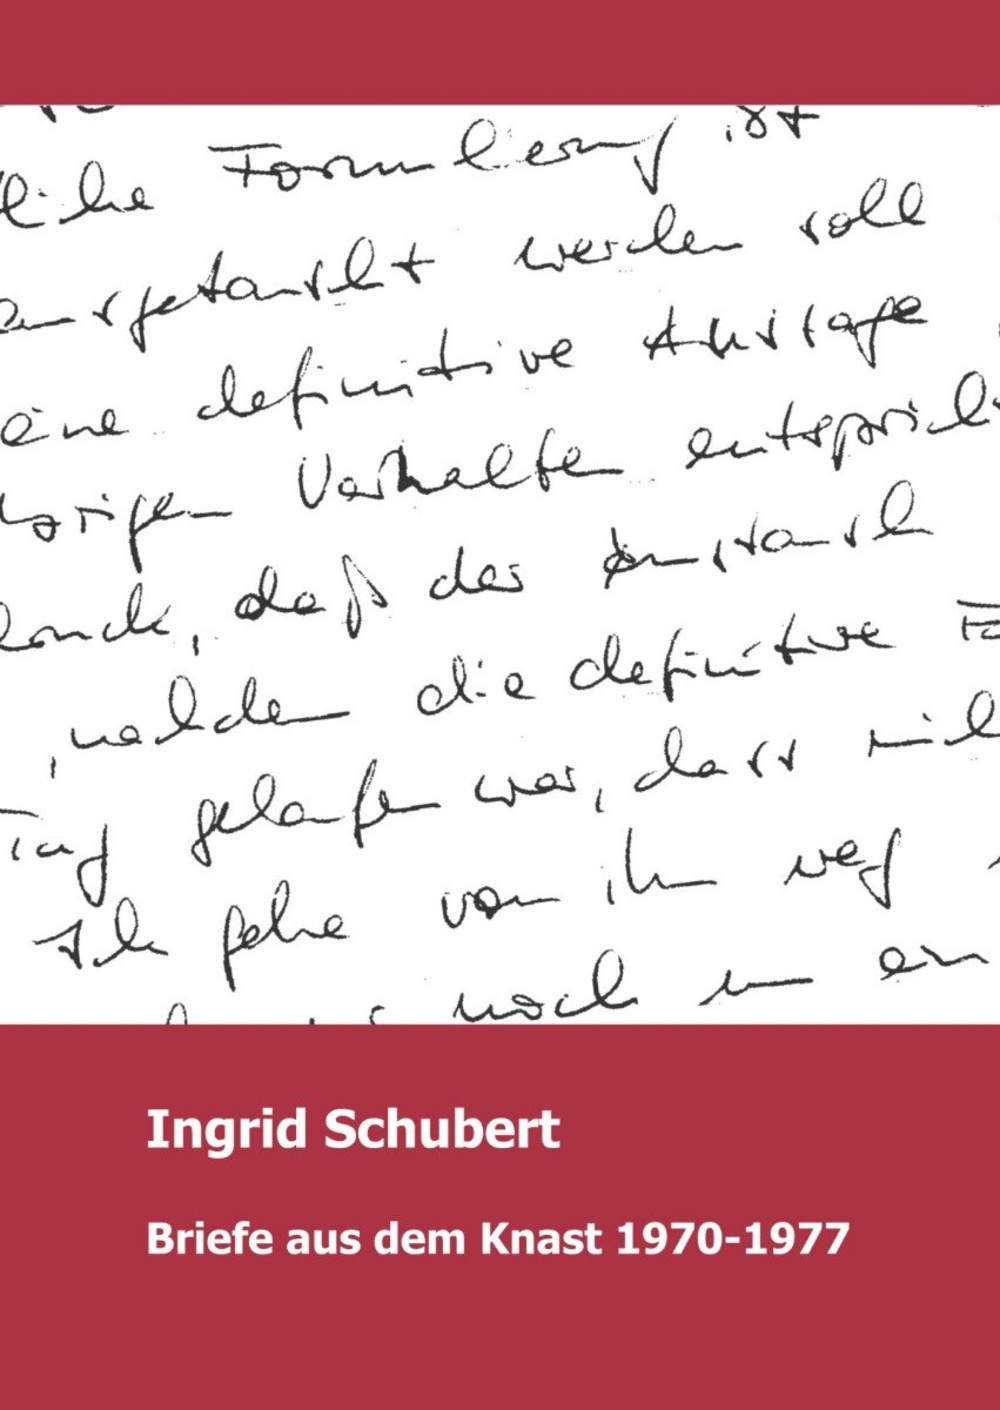 liche Formulierung ist
ausgetauscht werden soll
eine definitive Aussage
Verhalten entspricht
daß der Austausch
, welchen die definitive
gelaufen war, dass mich
Ich gehe von ihm weg
noch in ein
Ingrid Schubert
Briefe aus dem Knast 1970-1977